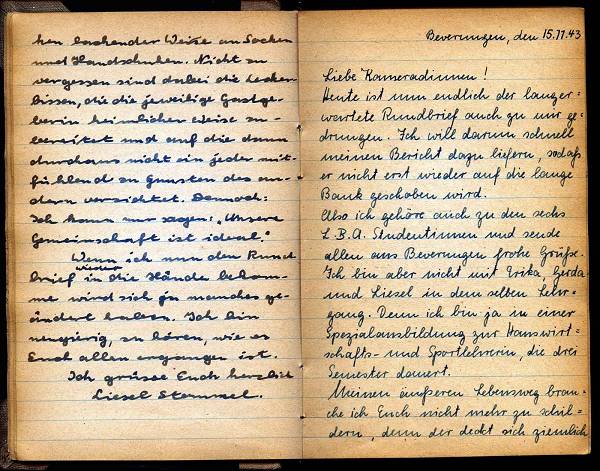 ken lachender Weise an Socken
und Handschuhen. Nicht zu
vergessen sind dabei die Lecker-
bissen, die die jeweilige Gastge-
berin heimlicher Weise zu-
bereitet und auf die dann
durchaus nicht ein jeder mit-
fühlend zu Gunsten des an-
dern verzichtet. Dennoch:
Ich kann nur sagen: „Unsere
Gemeinschaft ist ideal."
Wenn ich nun den Rund
brief wieder in die Hände bekom-
me wird sich ja manches ge-
ändert haben. Ich bin
neugierig, zu hören, wie es
Euch allen ergangen ist.
Ich grüsse Euch herzlich
Liesel Stammel.
Beverungen, den 15.11.43
Liebe Kameradinnen!
Heute ist nun endlich der langer=
wartete Rundbrief auch zu mir ge=
drungen. Ich will darum schnell
meinen Bericht dazu liefern, sodaß
er nicht erst wieder auf die lange
Bank geschoben wird.
Also ich gehöre auch zu den sechs
L.B.A. Studentinnen und sende
allen aus Beverungen frohe Grüße.
Ich bin aber nicht mit Erika, Gerda
und Liesel in dem selben Lehr-
gang. Denn ich bin ja in einer
Spezialausbildung zur Hauswirt-
schafts- und Sportlehrerin, die drei
Semester dauert.
Meinen äußeren Lebensweg brau-
che ich Euch nicht mehr zu schil=
dern, denn der deckt sich ziemlich